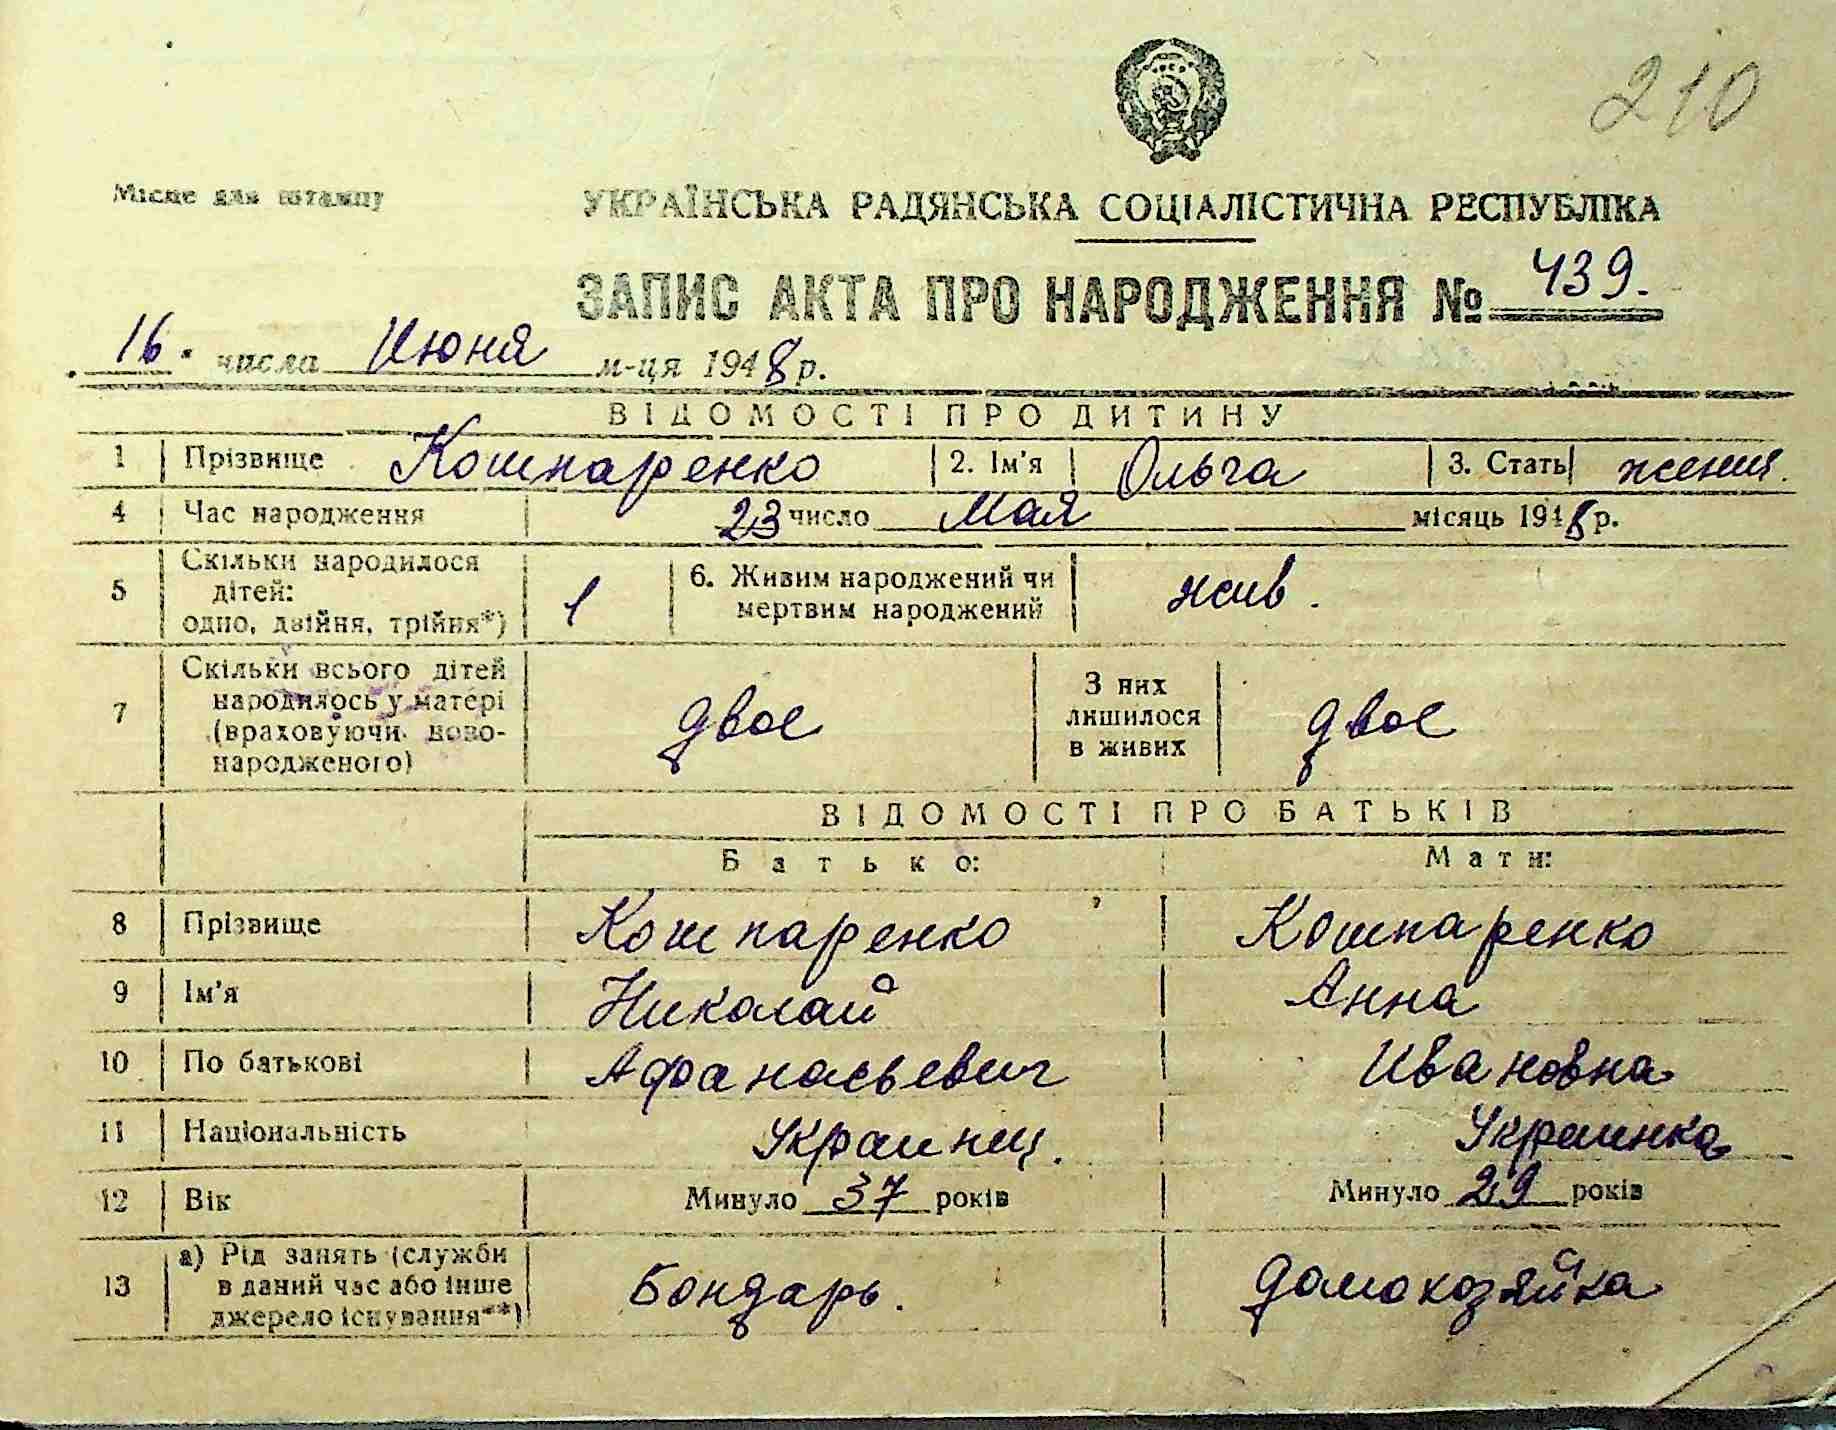 210
Місце для штампу
УКРАЇНСЬКА РАДЯНСЬКА СОЦІАЛІСТИЧНА РЕСПУБЛІКА
ЗАПИС АКТА ПРО НАРОДЖЕННЯ № 439.
16. числа Июня м-ця 1948 р.
ВІДОМОСТІ ПРО ДИТИНУ
1 Прізвище Кошпаренко 2. Ім'я Ольга 3. Стать женщ.
4 Час народження 23 число Мая місяць 1948 р.
5 Скільки народилося дітей: одно, двійня, трійня*) 1 6. Живим народжений чи мертвим народжений жив.
7 Скільки всього дітей народилось у матері (враховуючи ново-народженого) двое З них лишилося в живих двое
ВІДОМОСТІ ПРО БАТЬКІВ
Батько: Мати:
8 Прізвище Кошпаренко Кошпаренко
9 Ім'я Николай Анна
10 По батькові Афанасьевич Ивановна
11 Національність Украинец. Украинка
12 Вік Минуло 37 років Минуло 29 років
13 а) Рід занять (служби в даний час або інше джерело існування**) Бондарь. домохозяйка